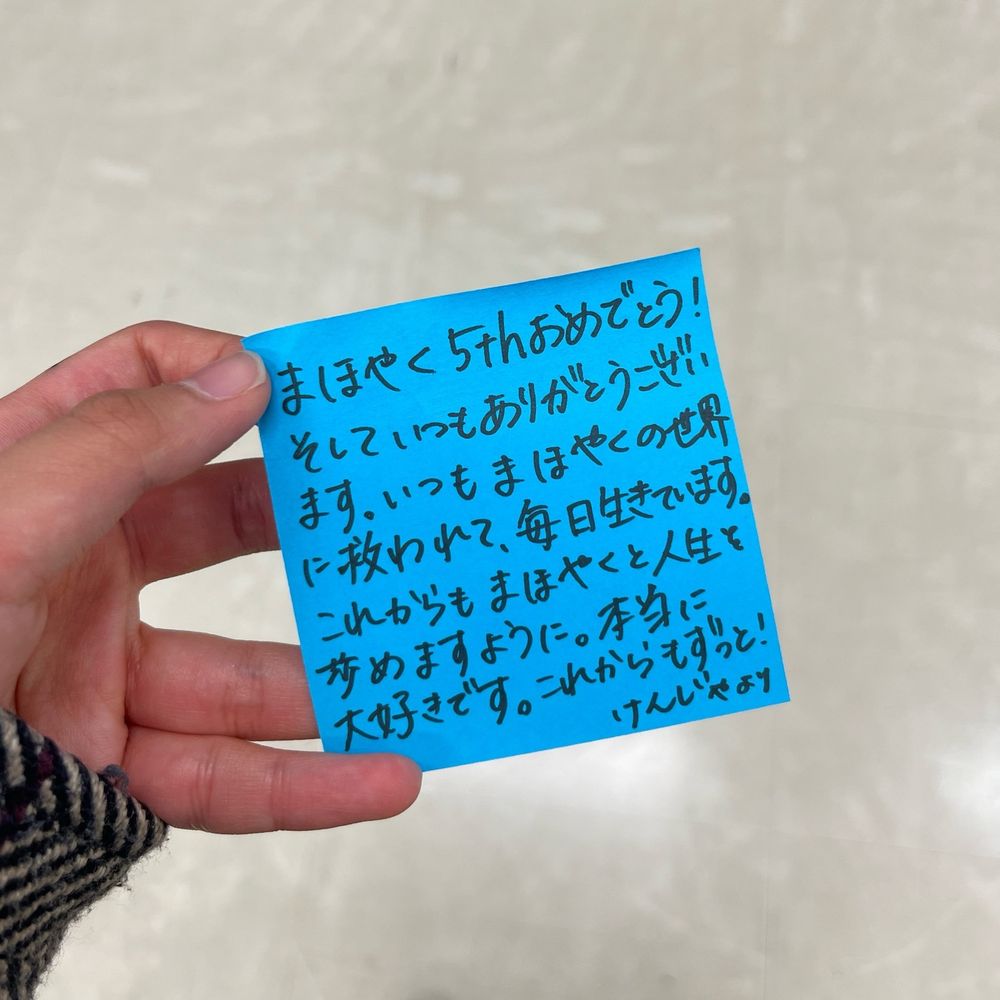 まほやく5thおめでとう!
そしていつもありがとうござい
ます。いつもまほやくの世界
に救われて、毎日生きています。
これからもまほやくと人生を
歩めますように。本当に
大好きです。これからもずっと!
けんじゃより